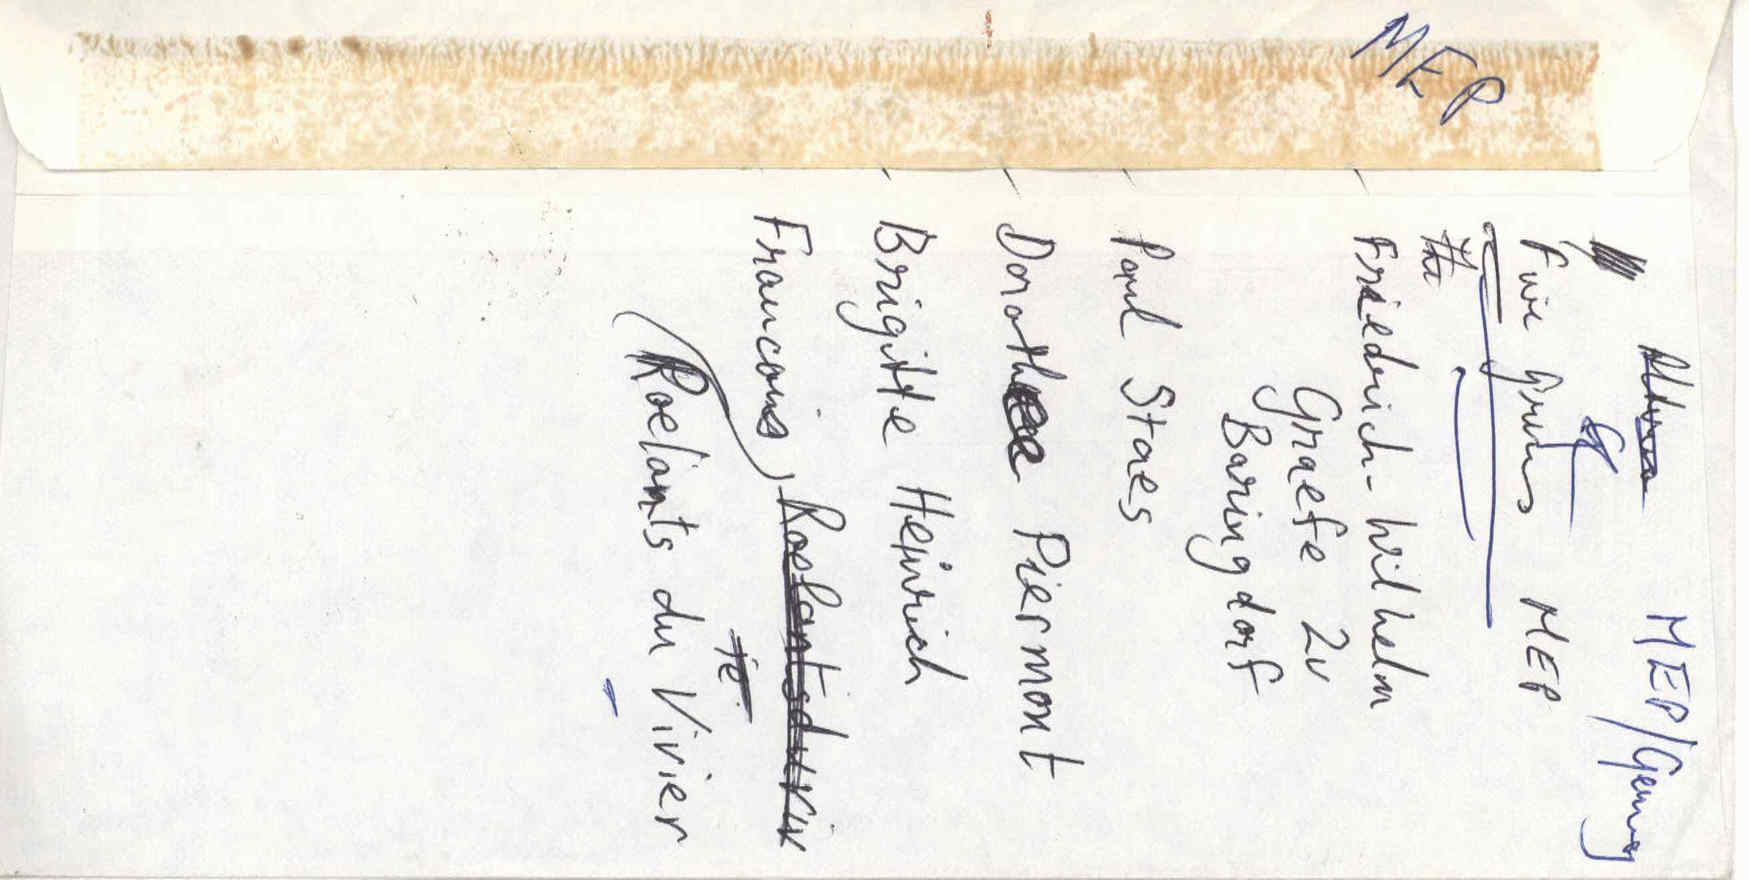 MEP
MEP/Germany
MEP
Friedrich-Wilhelm
Graefe zu
Baringdorf
Paul Staes
Dorothee Piermont
Brigitte Heinrich
Francois, Roelantsduvivi
te
(Roelants du Vivier